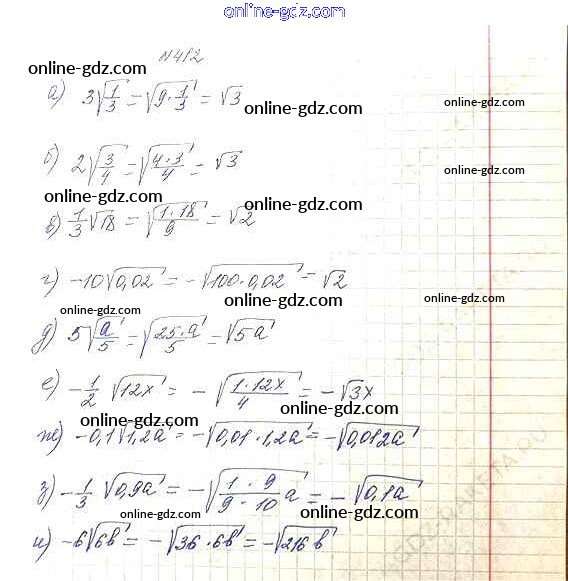 online-gdz.com
N 412
online-gdz.com
а) 3√(1/3) = √(9·1/3) = √3
online-gdz.com
online-gdz.com
б) 2√(3/4) = √(4·3/4) = √3
online-gdz.com
online-gdz.com
online-gdz.com
в) 1/3 √18 = √(1·18/9) = √2
online-gdz.com
г) -10√0,02 = -√(100·0,02) = √2
online-gdz.com
online-gdz.com
online-gdz.com
д) 5√(a/5) = √(25·a/5) = √5a
online-gdz.com
е) -1/2 √12x = -√(1·12x/4) = -√3x
online-gdz.com
online-gdz.com
ж) -0,1√1,2a = -√(0,01·1,2a) = -√0,012a
з) -1/3 √0,9a = -√(1·9/(9·10) a) = -√0,1a
online-gdz.com
и) -6√6b = -√(36·6b) = -√216b